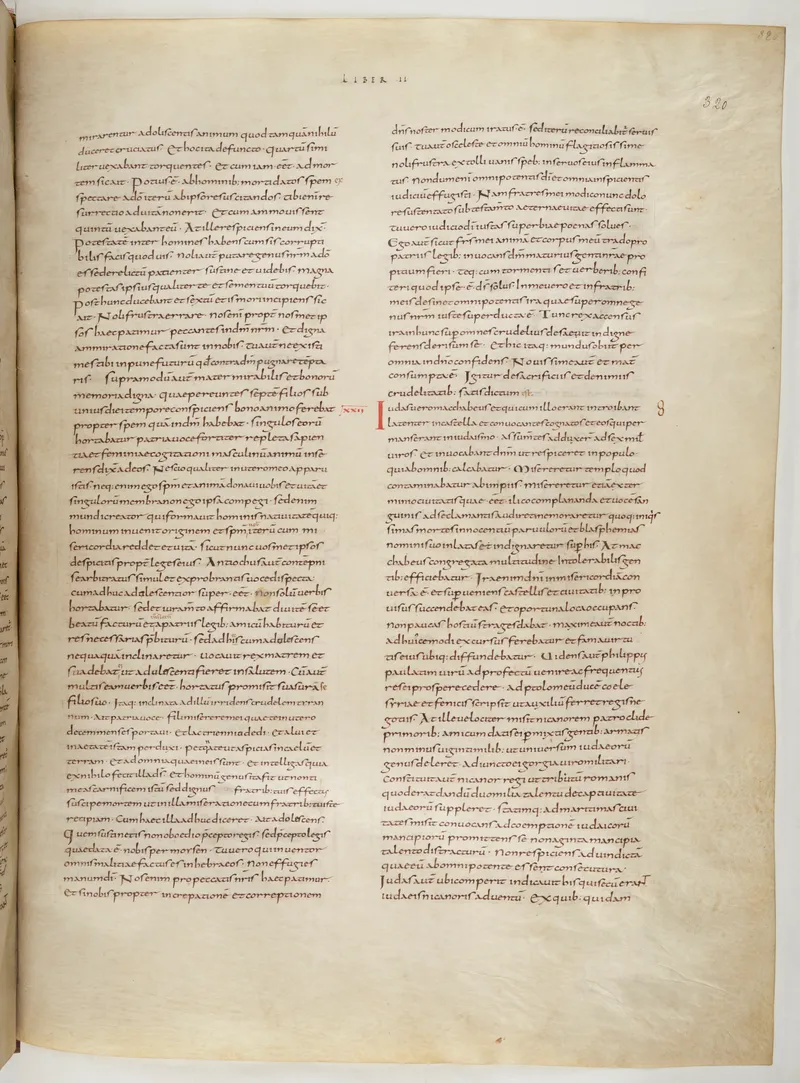 LIBER II
320
mirarentur adolescentis animum quod tamquã nihilũ
duceret cruciatus · Et hoc ita defuncto · quartũ simi
liter uexabant torquentes · Et cum iam eēt ad mor
tem sic ait · Potius ē abhominib: morti datos spem ex
spectare a dō iterũ ab ipso resuscitandos · tibi enim re
surrectio ad uitã non erit · Et cum ammouissent
quintũ uexabant eũ · At ille respiciens in eum dix̄
Potestatē inter homines habens cum sis corrupti
bilis facis quod uis · noli aut̄ putare genus nr̄m a dō
esse derelictũ patienter sustine et uidebis magna
potestas ipsius qualiter te et semen tuũ torquebit ·
Post hunc ducebant et sextũ et is mori incipiens sic
ait · Noli frustra errare · nos eni propt̄ nosmet ip
sos haec patimur peccantes in dm̄ nr̄m · Et digna
ammiratione facta sunt in nobis · tu aut̄ ne existi
mes tibi inpune futurũ qđ contra dm̄ pugnare tēpta
ris · supra modũ aut̄ mater mirabilis et bonorũ
memoria digna · quae pereuntes septē filios sub
unius diei tempore conspiciens bono animo ferebat
propter spem quã in dm̄ habebat · singulos eorũ
hortabatur patria uoce fortiter repleta sapien
tia et femineae cogitationi masculinũ animũ inse
rens dix̄ ad eos · Nescio qualiter in utero meo apparu
istis · neq: enim ego spm̄ et animã donaui uobis et uitā et
singulorũ membra non ego ipsa compegi · sed enim
mundi creator qui formauit hominis natiuitatē quiq:
hominum inuenit originem et spm̄ iterũ cum mi
sericordia reddet et uitã · sicut nunc uosmet ipsos
despicitis propt̄ leges eius · Antiochus aut̄ contēpni
se arbitratus simul et exprobrantis uoce dispecta ·
cum adhuc adolescentior super eēt · non solũ uerbis
hortabatur · sed et iuram̄to affirmabat diuitē se et
beatũ facturũ et translatũ a patriis legib: amicũ habiturũ et
res necessarias p̄biturũ · sed ad his cum adolescens
nequaquã inclinaretur · uocauit rex matrem et
suadebat ut adulescenti fieret in salutem · Cũ aut̄
multis eam uerbis eēt hortatus promisit suasurã se
filio suo · Itaq: inclinata ad illũ irridens crudelem tyran
num · ait patria uoce · fili mi serere mei quae te in utero
decem mensē portaui · et lac triennio dedi · et alui et
in aetatē istam perduxi · peto nate ut aspicias in caelũ et
terram · Et ad omnia quae in eis sunt · et intellegas quia
ex nihilo fecit illa d̄s · et hominũ genus ita fit ut non ti
meas carnificem istũ sed dignus fratrib: tuis effectus
suscipe mortem ut in illa miseratione cum fratrib: tuis te
recipiam · Cum haec illa adhuc diceret · Ait adolescens ·
Quem sustinetis non oboedio p̄cepto regis · sed p̄cepto legis
quae data ē nobis per moysen · tu uero qui inuentor
omnis malitiae factus es in hebraeos · Non effugies
manum dī · Nos enim pro peccatis nr̄is haec patimur ·
Et si nobis propter increpationē et correptionem
dn̄s noster modicum iratus ē · sed iterũ reconciliabitr̄ seruis
suis · tu aut̄ o sceleste et omniũ hominũ flagitiosissime
noli frustra extolli uanis speb: in seruos eius inflamma
tus · Nondum eni omnipotentis dī et omnia inspicientis
iudiciũ effugisti · Nam fratres mei modico nunc dolo
re sustentato sub testam̄to aeternae uitae effecti sunt ·
tu uero iudicio dī iustas superbiae poenas solues ·
Ego aut̄ sicut frs̄ mei animã et corpus meũ trado pro
patriis legib: inuocans dm̄ maturius genti nrae pro
pitium fieri · teq: cum tormentis et uerberib: confi
teri quod ipse ē d̄s solus · In me uero et in fratrib:
meis desinet omnipotentis ira quae super omne ge
nus nr̄m iuste superducta ē · Tunc rex accensus
ira in hunc super omnes crudelius desaeuit indigne
ferens derisum se · et hic itaq: mundus obiit per
omnia in dn̄o confidens · Nouissime aut̄ et mat̄
consumpta ē · Igitur de sacrificiis et de nimiis
crudelitatib: satis dictum
XXII
Iudas uero machabeus et qui cum illo erant introibant
latenter in castella et conuocantes cognatos et eos qui per
manserant in iudaismo · assum̄tes adduxer̄ ad sex mił
uiros · et inuocabant dnm̄ ut respiceret in populo
qui ab omnib: calcabatur · Misereretur templo quod
contaminabatur ab impiis · misereretur etiã exter
minio ciuitatis quae eēt ilico complananda et uocē san
guinis ad se clamantis audiret memoraretur quoq: iniq̇s
simas mortes innocentiũ paruulorũ et blasphemias
nomini suo inlatas et indignaretur sup his · At mac
habeus congregata multitudine intolerabilis gen
tib: efficiebatur · Ira enim dnī in misericordiã con
uersa ē · et superuenies castellis et ciuitatib: inpro
uisus succendebat eas · et oportuna loca occupans
non paucas hostiũ strages dabat · maxime aut̄ noctib:
ad huiscemodi excursus ferebatur et fama uirtu
tis eius ubiq: diffundebatur · Uidens aut̄ philippus
paulatim uirũ ad profectũ uenire ac frequentius
res ei prospere cedere · ad ptolomeũ ducē coele
syriae et fenicis scripsit ut auxiliũ ferret regis ne
gotiis · At ille uelociter misit nicanorem patrocli de
primorib: amicum datis ei p̄mixtis gentib: armatis
non minus uiginti milib: ut uniuersum iudaeorũ
genus deleret · adiuncto ei gorgia uiro militari ·
Constituit aut̄ nicanor regi ut tributũ romanis
quod erat dandũ duo milia talentũ de captiuitate
iudaeorũ suppleret · statimq: ad maritimas ciui
tates misit conuocans ad coemptionē iudaicorũ
mancipiorũ promittens se nonaginta mancipia
talento distracturũ · Non respiciens ad uindictã
quae eũ ab omnipotente esset consecutura ·
Iudas aut̄ ubi comperit indicauit his qui secũ erant
iudaeis nicanoris aduentũ · Ex quib: quidam